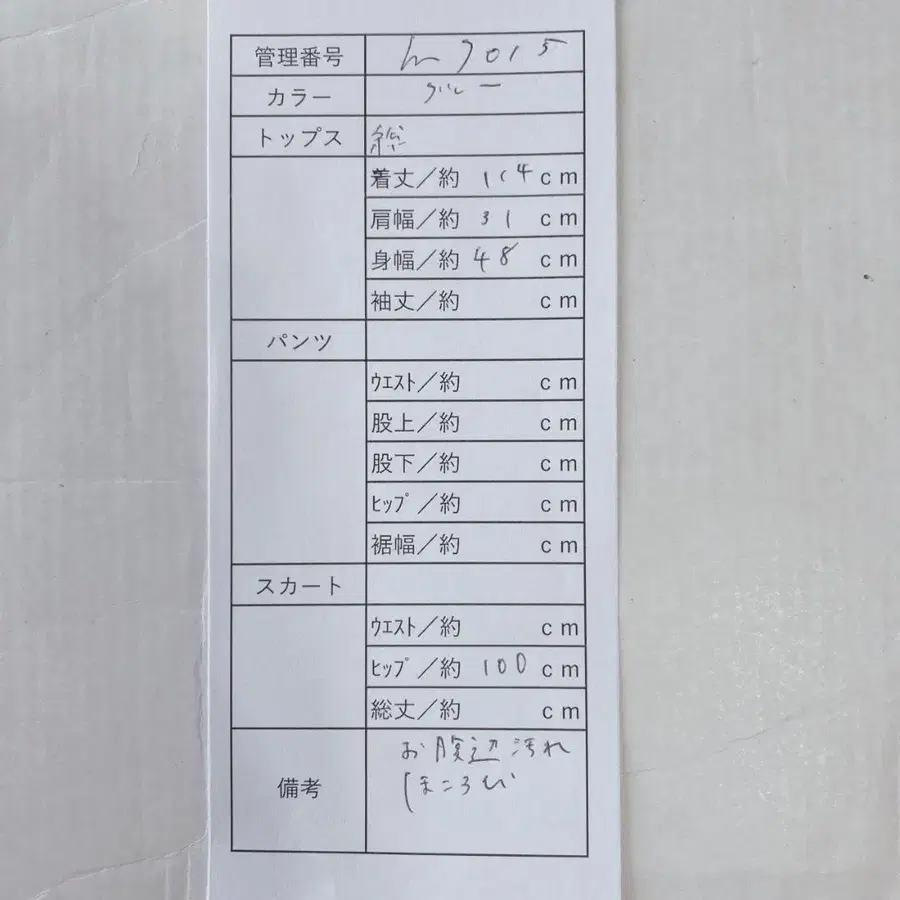 管理番号 m7015
カラー グレー
トップス 総
着丈／約 114 cm
肩幅／約 31 cm
身幅／約 48 cm
袖丈／約 cm
パンツ
ｳｴｽﾄ／約 cm
股上／約 cm
股下／約 cm
ﾋｯﾌﾟ／約 cm
裾幅／約 cm
スカート
ｳｴｽﾄ／約 cm
ﾋｯﾌﾟ／約 100 cm
総丈／約 cm
備考 お腹辺汚れ
ほころび